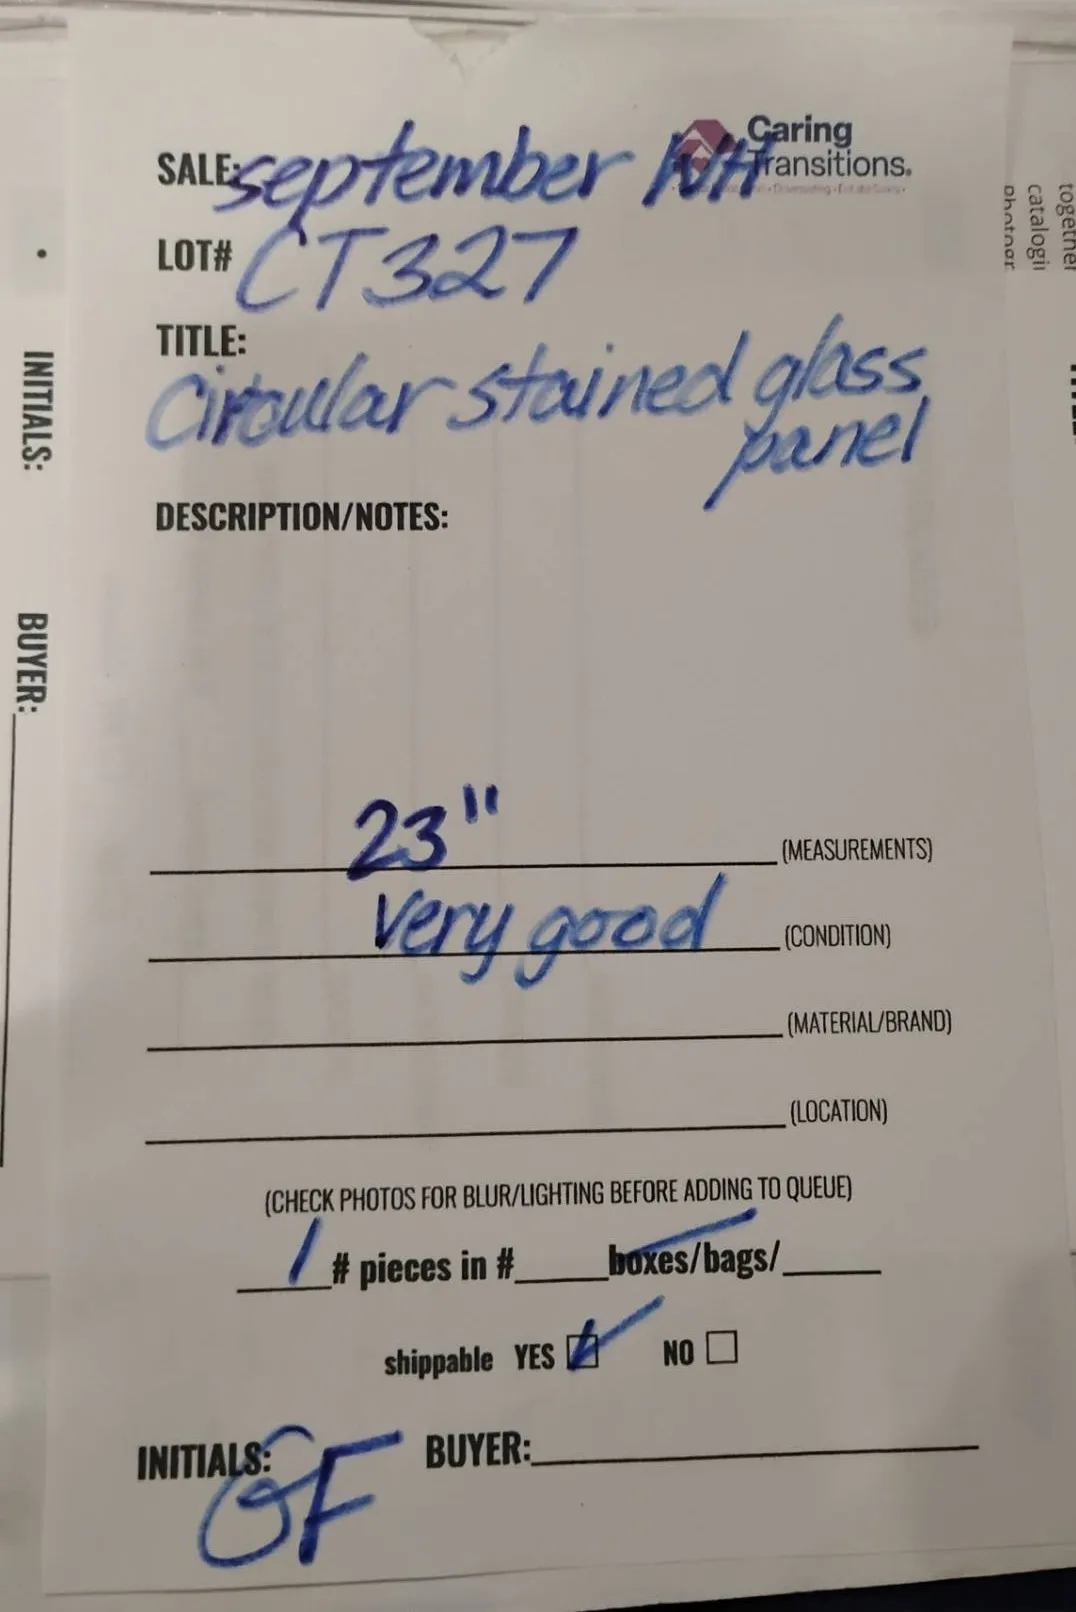 Caring
Transitions.
SALE: september WH
LOT# CT327
TITLE:
Circular stained glass
panel
DESCRIPTION/NOTES:
23" (MEASUREMENTS)
Very good (CONDITION)
(MATERIAL/BRAND)
(LOCATION)
(CHECK PHOTOS FOR BLUR/LIGHTING BEFORE ADDING TO QUEUE)
1 # pieces in # boxes/bags/
shippable YES NO
INITIALS: GF BUYER:
INITIALS:
BUYER:
together
catalogi